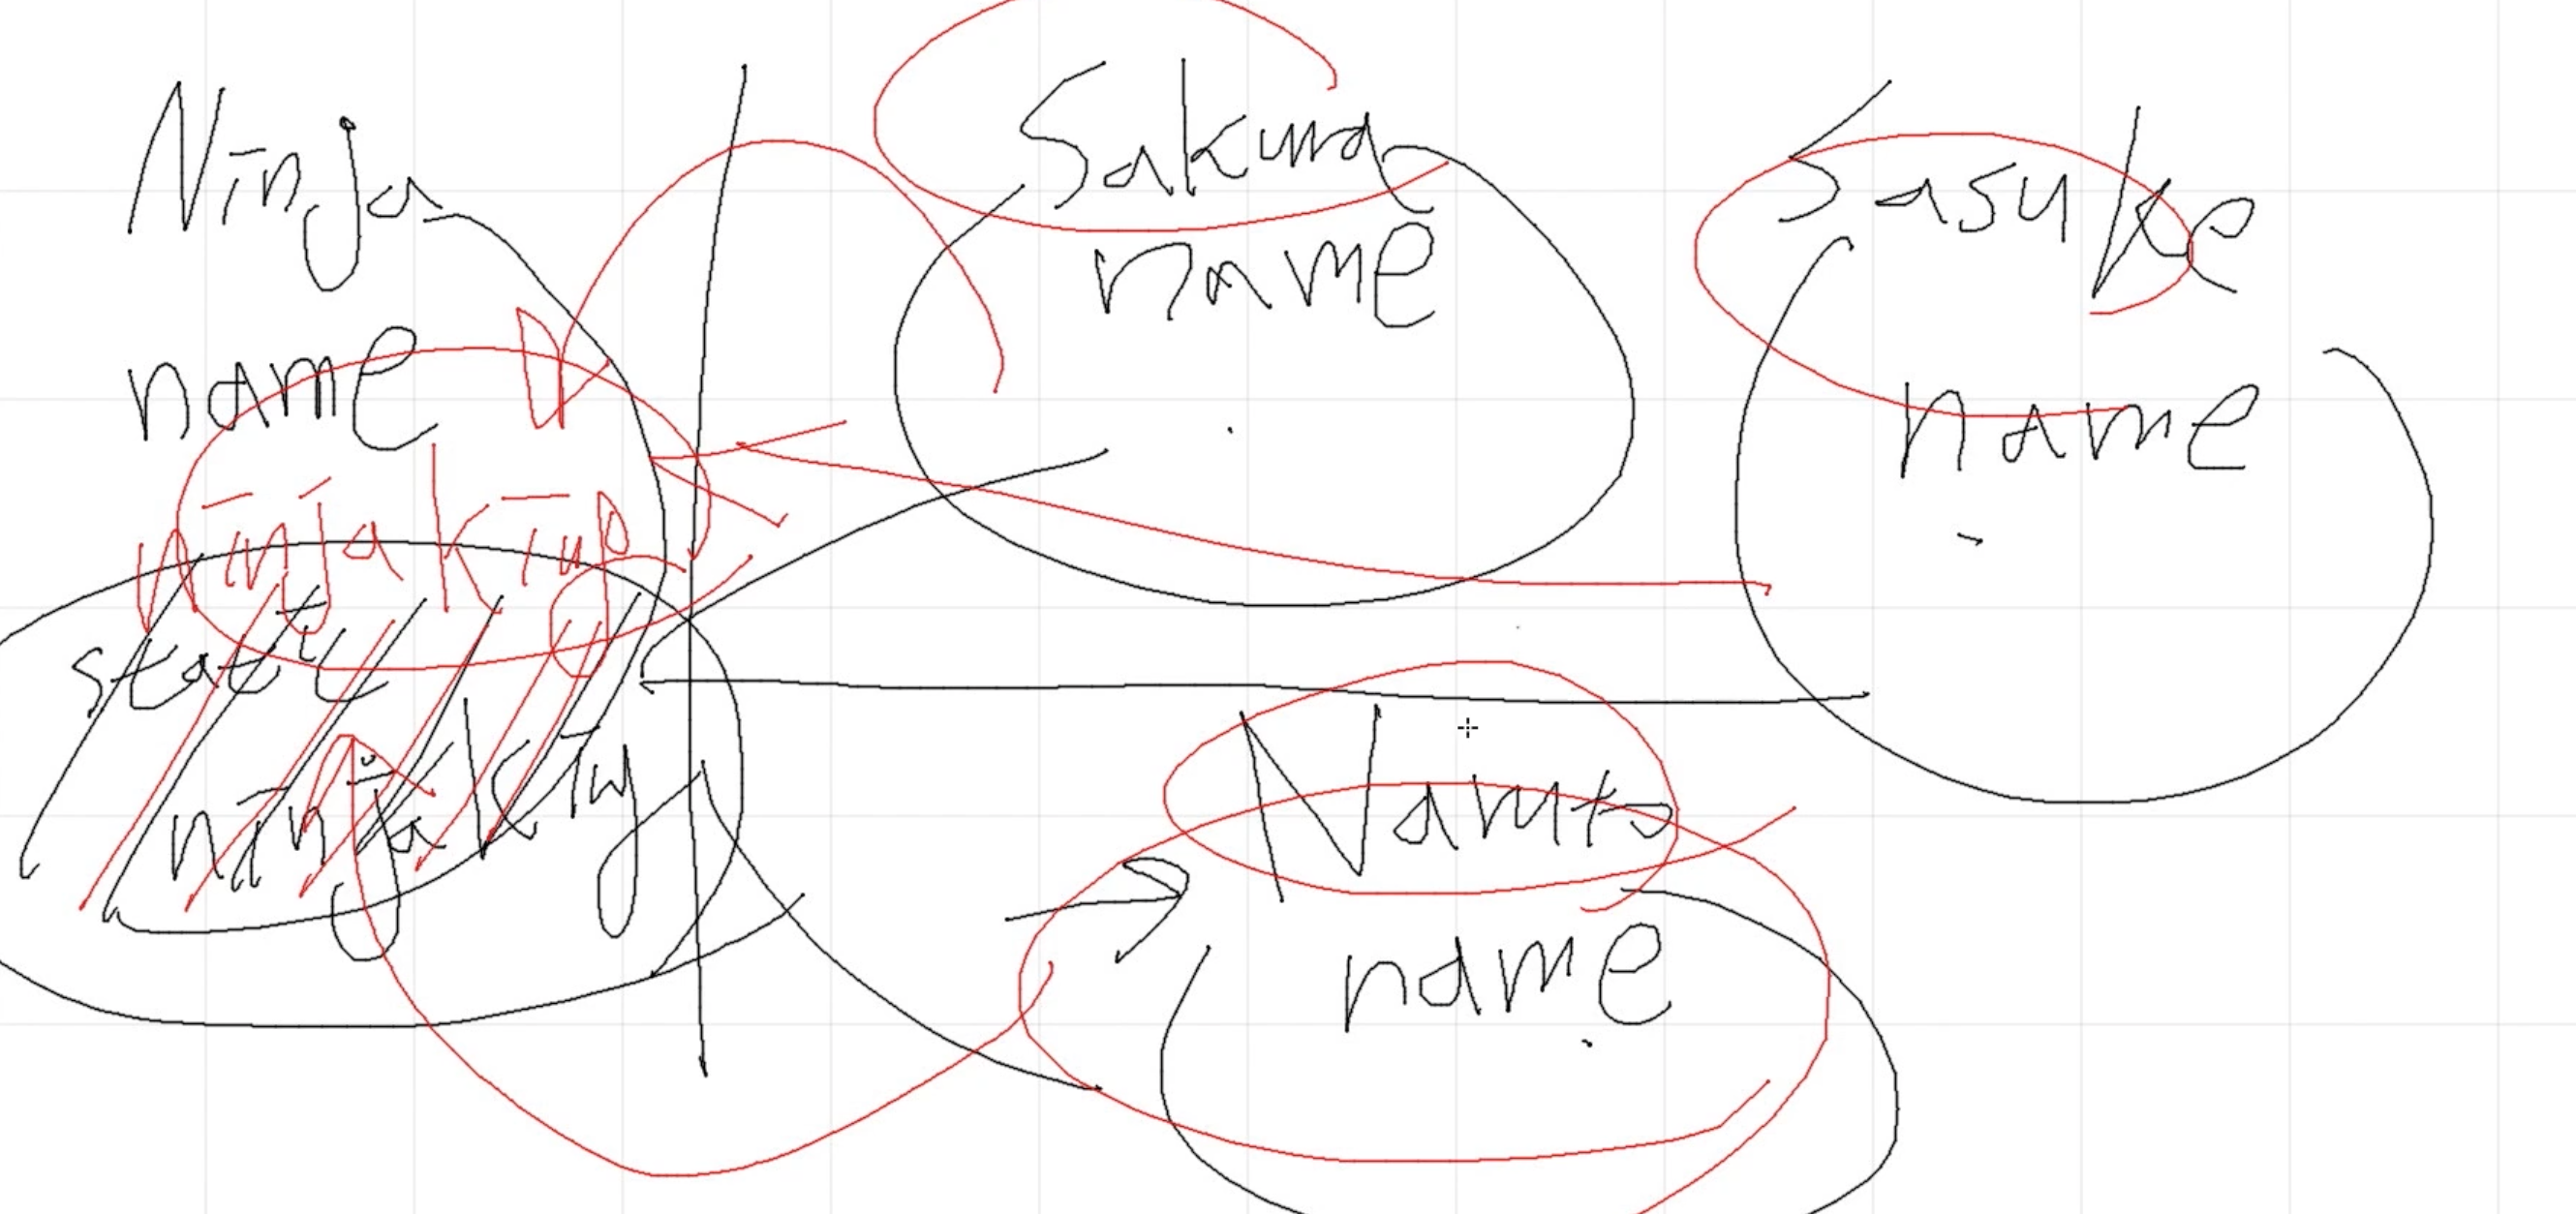 Ninja
name
ninjakin
static
ninjakin
Sakura
name
Sasuke
name
Naruto
name